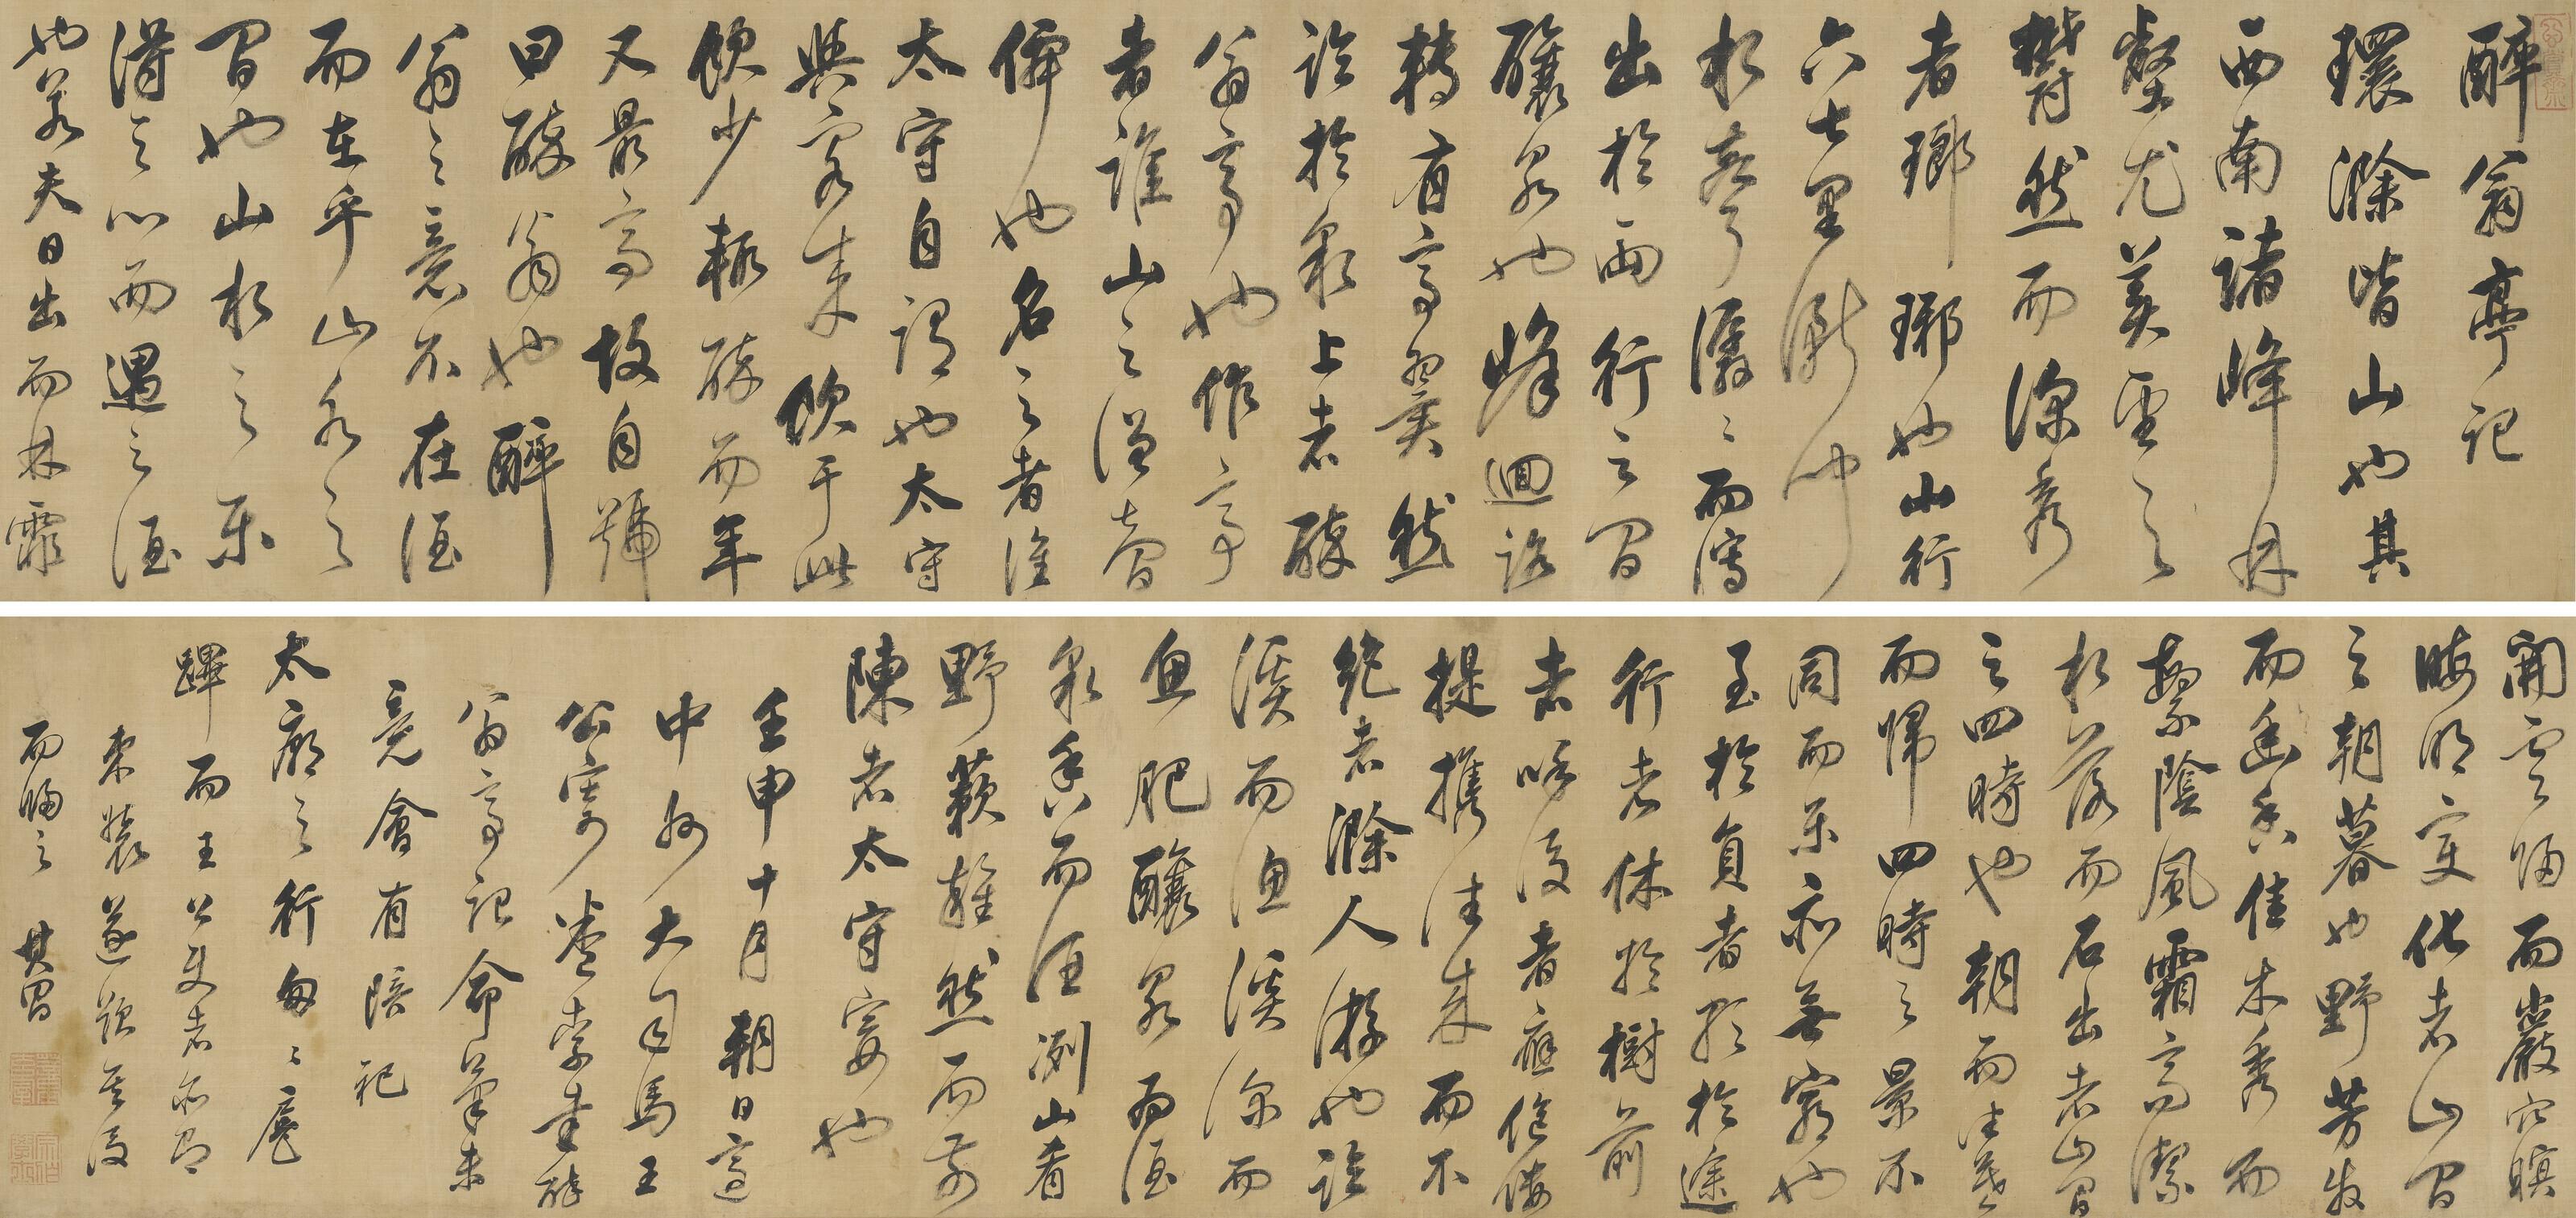 醉翁亭記
環滁皆山也其
西南諸峰林
壑尤美望之
鬱然而深秀
者瑯琊也山行
六七里漸聞
水聲潺〻而瀉
出於兩行之間
釀泉也峰迴路
轉有亭翼然
臨於泉上者醉
翁亭也作亭
者誰山之僧智
僊也名之者誰
太守自謂也太守
與客來飲于此
飲少輒醉而年
又最高故自號
曰醉翁也醉
翁之意不在酒
而在乎山水之
間也山水之樂
得之心而遇之酒
也若夫日出而林霏
開雲歸而巖穴暝
晦明變化者山間
之朝暮也野芳發
而幽香佳木秀而
繁陰風霜高潔
水落而石出者山間
之四時也朝而往暮
而歸四時之景不
同而樂亦無窮也
至於負者歌於途
行者休於樹前
者呼後者應傴僂
提攜往來而不
絕者滁人游也臨
溪而漁溪深而
魚肥釀泉為酒
泉香而酒冽山肴
野蔌雜然而前
陳者太守宴也
壬申十月朝日適
中州大司馬王
公寄卷索書醉
翁亭記命筆未
竟會有陪祀
太廟之行匆〻
蹕而王公使者亦即
束裝遂題其後
而歸之 其昌